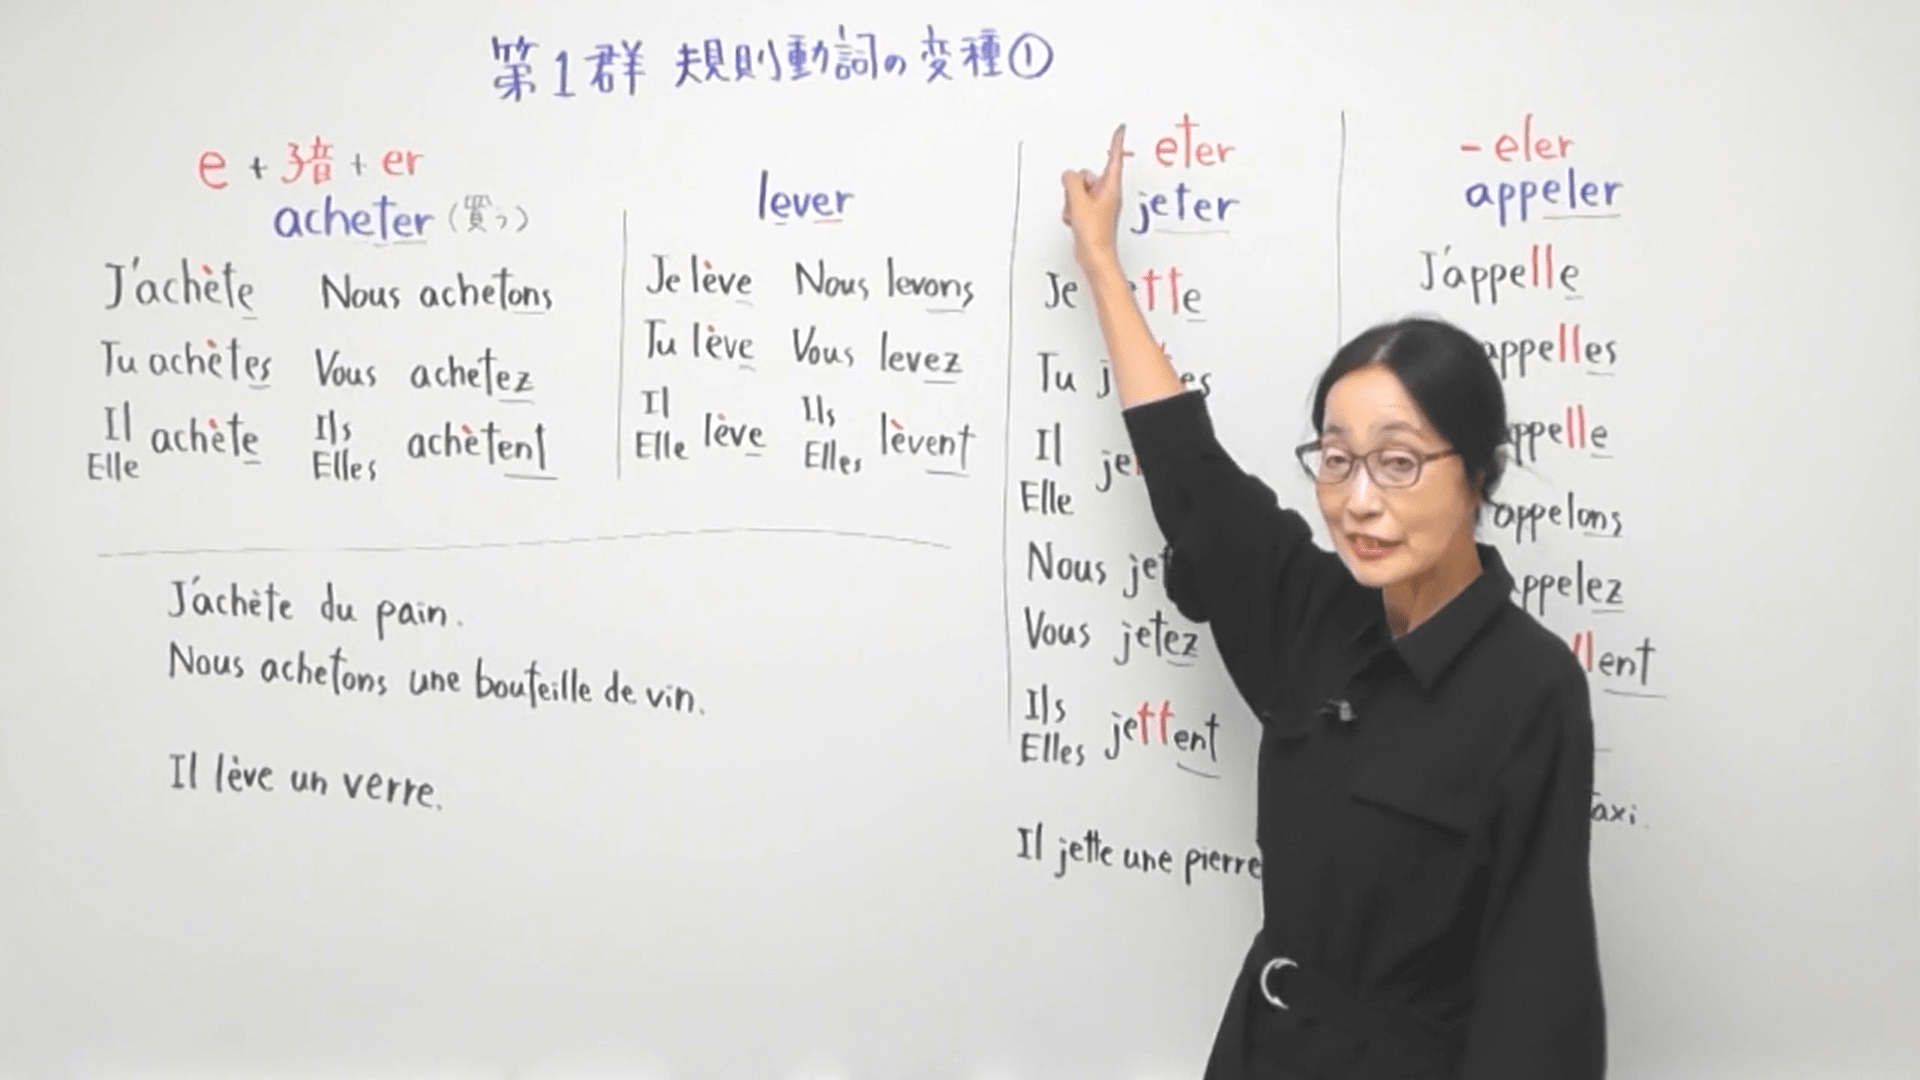 第1群 規則動詞の変種①
e + 子音 + er
acheter (買う)
J'achète Nous achetons
Tu achètes Vous achetez
Il Elle achète Ils Elles achètent
lever
Je lève Nous levons
Tu lève Vous levez
Il Elle lève Ils Elles lèvent
J'achète du pain.
Nous achetons une bouteille de vin.
Il lève un verre.
- eter
jeter
Je
Tu
Il
Elle
Nous
Vous jetez
Ils Elles jettent
Il jette une pierre
- eler
appeler
J'appelle
appelles
appelle
appelons
appelez
llent
taxi.